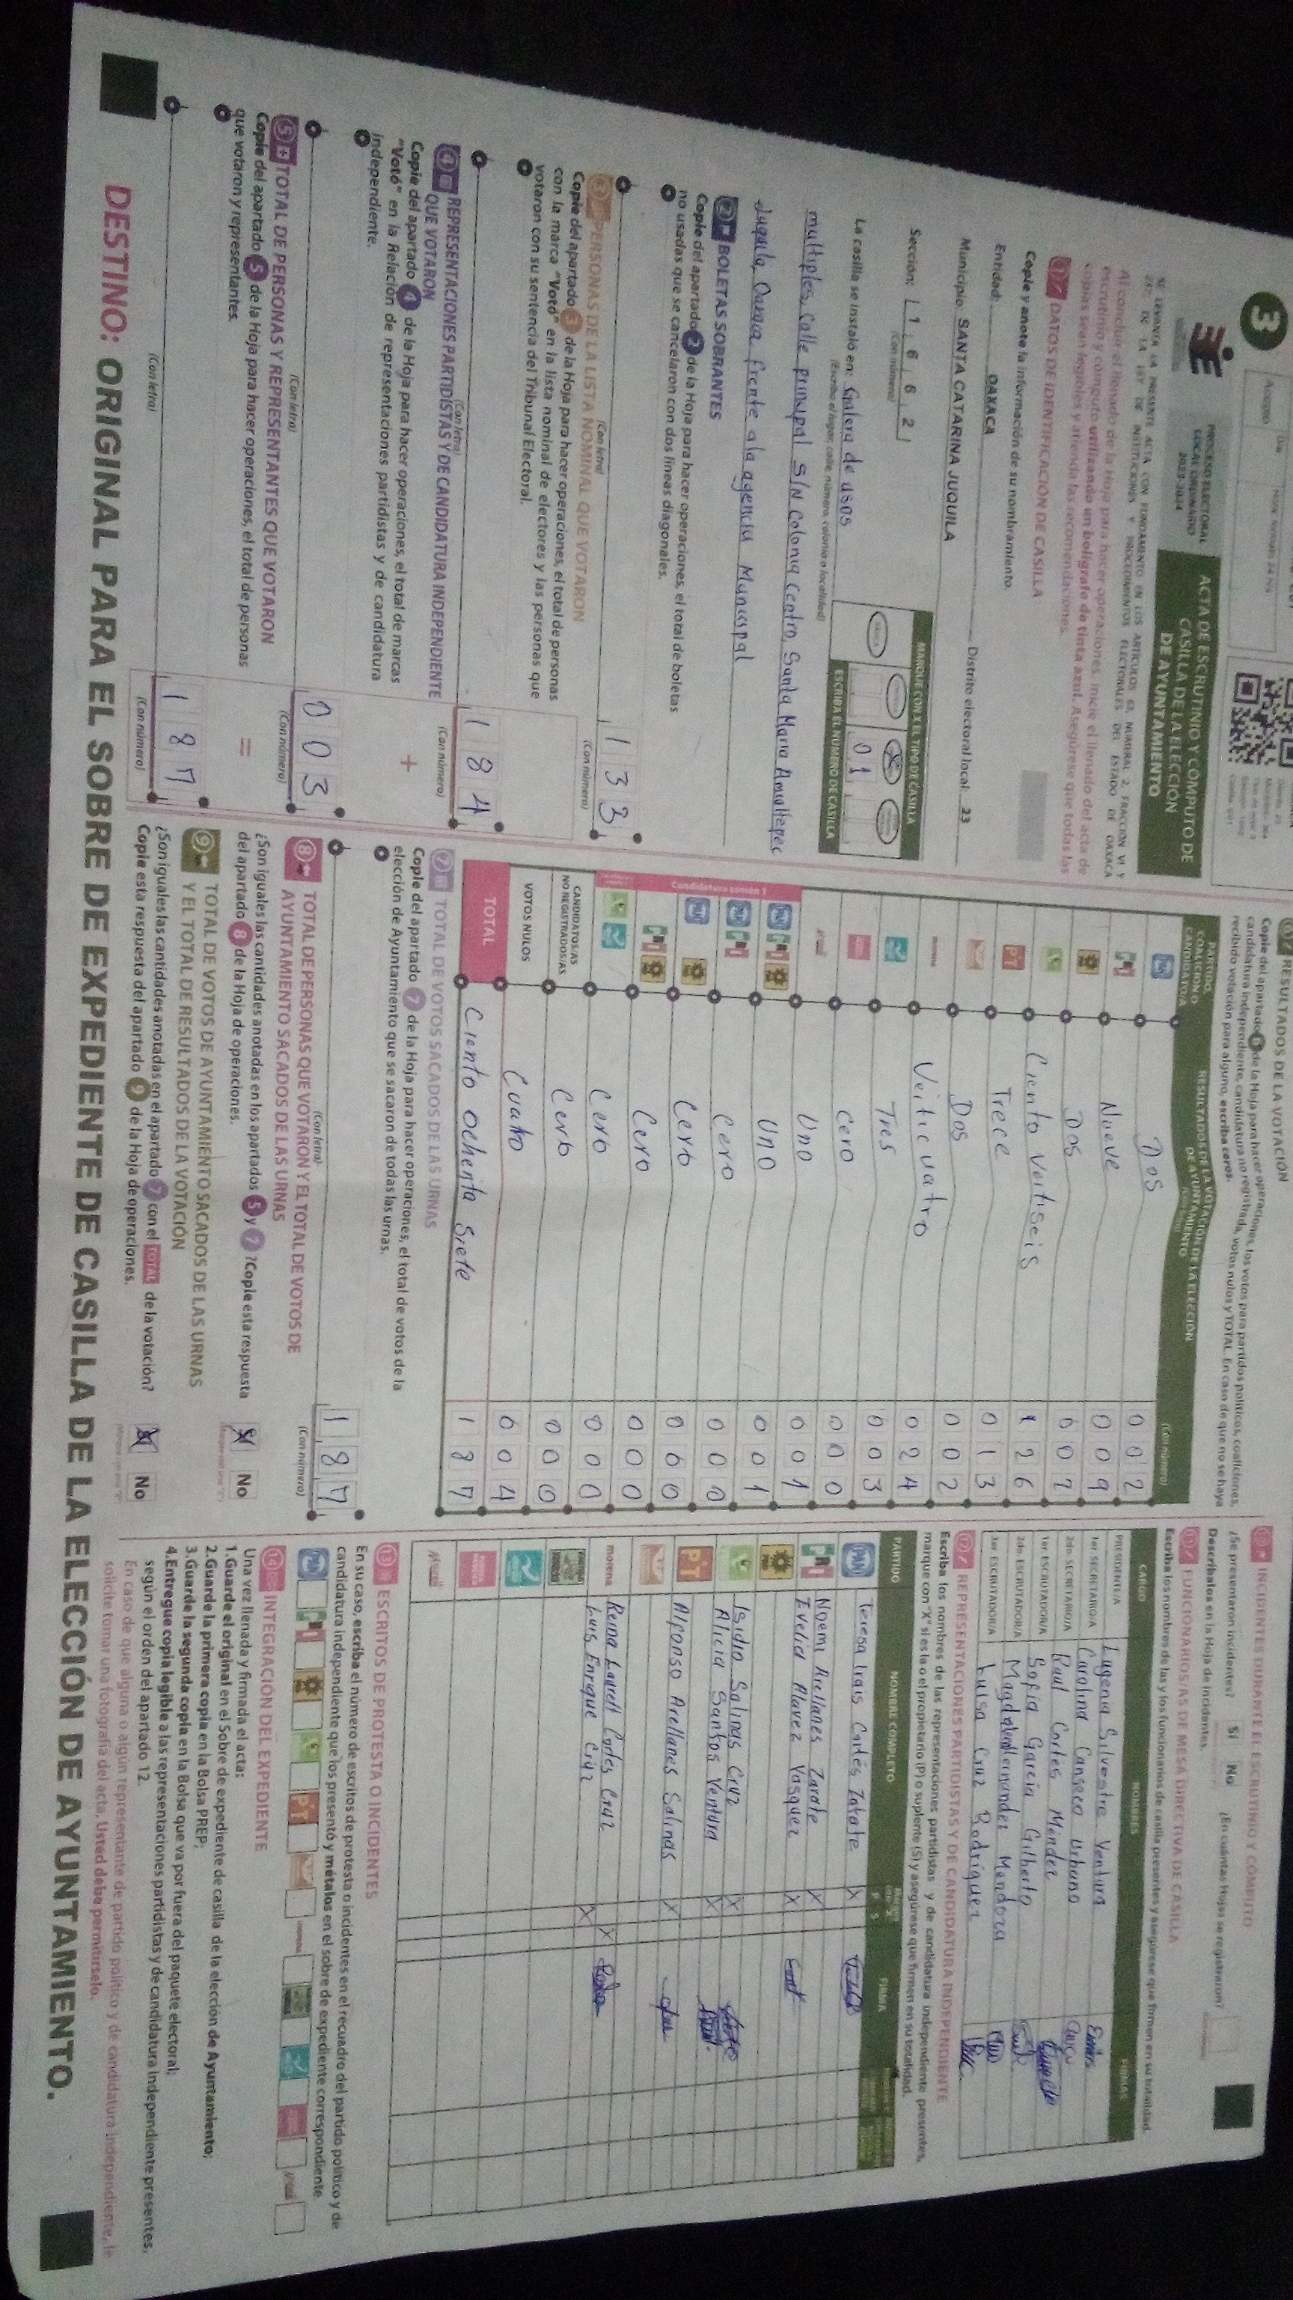 3
PROCESO ELECTORAL
LOCAL ORDINARIO
2023-2024
ACTA DE ESCRUTINIO Y CÓMPUTO DE
CASILLA DE LA ELECCIÓN
DE AYUNTAMIENTO
SE LEVANTA LA PRESENTE ACTA CON FUNDAMENTO EN LOS ARTÍCULOS 63, NUMERAL 2, FRACCIÓN VI Y
DE LA LEY DE INSTITUCIONES Y PROCEDIMIENTOS ELECTORALES DEL ESTADO DE OAXACA
Al concluir el llenado de la Hoja para hacer operaciones, inicie el llenado del acta de
escrutinio y cómputo utilizando un bolígrafo de tinta azul. Asegúrese que todas las
copias sean legibles y atienda las recomendaciones.
1 DATOS DE IDENTIFICACIÓN DE CASILLA
Copie y anote la información de su nombramiento.
Entidad: OAXACA
Municipio: SANTA CATARINA JUQUILA Distrito electoral local: 23
Sección: 1 6 6 2
(Con número)
MARQUE CON X EL TIPO DE CASILLA
ESCRIBA EL NÚMERO DE CASILLA
0 1
La casilla se instaló en: Galera de usos
(Escriba el lugar, calle, número, colonia o localidad)
multiples, Calle principal S/N Colonia Centro, Santa Maria Amialtepec
Juquila, Oaxaca frente a la agencia Municipal
2 BOLETAS SOBRANTES
Copie del apartado 2 de la Hoja para hacer operaciones, el total de boletas
no usadas que se cancelaron con dos líneas diagonales.
1 3 3
(Con letra) (Con número)
3 PERSONAS DE LA LISTA NOMINAL QUE VOTARON
Copie del apartado 3 de la Hoja para hacer operaciones, el total de personas
con la marca "Votó" en la lista nominal de electores y las personas que
votaron con su sentencia del Tribunal Electoral.
1 8 4
(Con letra) (Con número)
4 REPRESENTACIONES PARTIDISTAS Y DE CANDIDATURA INDEPENDIENTE
QUE VOTARON
Copie del apartado 4 de la Hoja para hacer operaciones, el total de marcas
"Votó" en la Relación de representaciones partidistas y de candidatura
independiente.
+
0 0 3
(Con letra) (Con número)
5 TOTAL DE PERSONAS Y REPRESENTANTES QUE VOTARON
Copie del apartado 5 de la Hoja para hacer operaciones, el total de personas
que votaron y representantes.
=
1 8 7
(Con letra) (Con número)
6 RESULTADOS DE LA VOTACIÓN
Copie del apartado 6 de la Hoja para hacer operaciones, los votos para partidos políticos, coaliciones,
candidatura independiente, candidatura no registrada, votos nulos y TOTAL. En caso de que no se haya
recibido votación para alguno, escriba ceros.
PARTIDO,
COALICIÓN O
CANDIDATO/A
RESULTADOS DE LA VOTACIÓN DE LA ELECCIÓN
DE AYUNTAMIENTO
(Con número)
Dos 0 0 2
Nueve 0 0 9
Dos 0 0 2
Ciento Veitiseis 1 2 6
PT Trece 0 1 3
Dos 0 0 2
morena Veiticuatro 0 2 4
Tres 0 0 3
Cero 0 0 0
Uno 0 0 1
Candidatura común 1
Uno 0 0 1
Cero 0 0 0
Cero 0 0 0
Cero 0 0 0
Cero 0 0 0
CANDIDATOS/AS
NO REGISTRADOS/AS
Cero 0 0 0
VOTOS NULOS Cuatro 0 0 4
TOTAL Ciento Ochenta Siete 1 8 7
7 TOTAL DE VOTOS SACADOS DE LAS URNAS
Copie del apartado 7 de la Hoja para hacer operaciones, el total de votos de la
elección de Ayuntamiento que se sacaron de todas las urnas.
1 8 7
(Con letra) (Con número)
8 TOTAL DE PERSONAS QUE VOTARON Y EL TOTAL DE VOTOS DE
AYUNTAMIENTO SACADOS DE LAS URNAS
¿Son iguales las cantidades anotadas en los apartados 5 y 7 ? Copie esta respuesta
del apartado 8 de la Hoja de operaciones.
Sí No
9 TOTAL DE VOTOS DE AYUNTAMIENTO SACADOS DE LAS URNAS
Y EL TOTAL DE RESULTADOS DE LA VOTACIÓN
¿Son iguales las cantidades anotadas en el apartado 7 con el TOTAL de la votación?
Copie esta respuesta del apartado 9 de la Hoja de operaciones.
Sí No
INCIDENTES DURANTE EL ESCRUTINIO Y CÓMPUTO
¿Se presentaron incidentes? Sí No ¿En cuántas Hojas se registraron?
Descríbalos en la Hoja de incidentes.
FUNCIONARIOS/AS DE MESA DIRECTIVA DE CASILLA
Escriba los nombres de las y los funcionarios de casilla presentes y asegúrese que firmen en su totalidad.
CARGO NOMBRES FIRMAS
PRESIDENTE/A Eugenia Silvestre Ventura
1er. SECRETARIO/A Carolina Canseco Urbano
2do. SECRETARIO/A Raul Cortes Mendez
1er. ESCRUTADOR/A Sofia Garcia Gilberto
2do. ESCRUTADOR/A Magdalena Hernandez Mendoza
3er. ESCRUTADOR/A Luisa Cruz Rodriguez
REPRESENTACIONES PARTIDISTAS Y DE CANDIDATURA INDEPENDIENTE
Escriba los nombres de las representaciones partidistas y de candidatura independiente presentes,
marque con "X" si es la o el propietario (P) o suplente (S) y asegúrese que firmen en su totalidad.
PARTIDO NOMBRE COMPLETO P S FIRMA
PAN Teresa Irais Cortés Zarate X
PRI Noemi Arellanes Zarate X
Evelia Alavez Vasquez X
Isidro Salinas Cruz X
Alicia Santos Ventura X
PT Alfonso Arellanes Salinas X
morena Reina Laurell Cortes Cruz X
Luis Enrique Cruz X
13 ESCRITOS DE PROTESTA O INCIDENTES
En su caso, escriba el número de escritos de protesta o incidentes en el recuadro del partido político y de
candidatura independiente que los presentó y métalos en el sobre de expediente correspondiente
14 INTEGRACIÓN DEL EXPEDIENTE
Una vez llenada y firmada el acta:
1.Guarde el original en el Sobre de expediente de casilla de la elección de Ayuntamiento;
2.Guarde la primera copia en la Bolsa PREP;
3.Guarde la segunda copia en la Bolsa que va por fuera del paquete electoral;
4.Entregue copia legible a las representaciones partidistas y de candidatura independiente presentes,
según el orden del apartado 12.
En caso de que alguna o algún representante de partido político y de candidatura independiente, le
solicite tomar una fotografía del acta, Usted debe permitírselo.
DESTINO: ORIGINAL PARA EL SOBRE DE EXPEDIENTE DE CASILLA DE LA ELECCIÓN DE AYUNTAMIENTO.